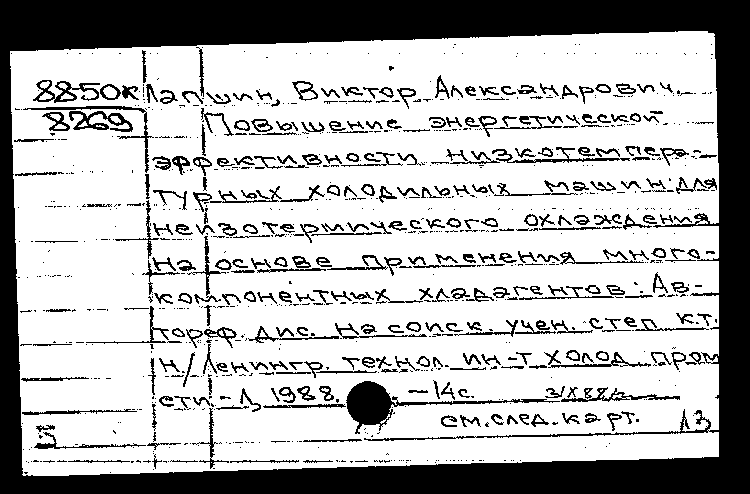 8850к Лапшин, Виктор Александрович.
8269 Повышение энергетической
эффективности низкотемпера-
турных холодильных машин для
неизотермического охлаждения
на основе применения много-
компонентных хладагентов: Ав-
тореф. дис. на соиск. учен. степ к.т.
н/Ленингр. технол. ин-т холод. пром
сти - Л, 1988. - 14с. 3/X 88г
см. след. карт. ЛЗ